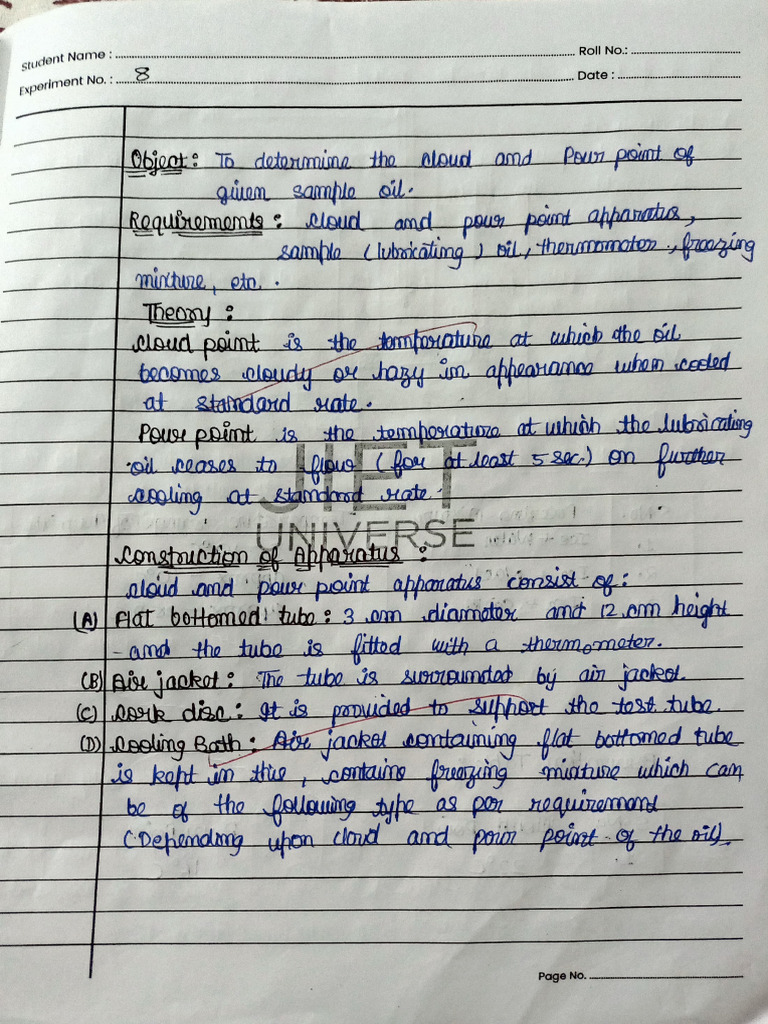 Student Name : Roll No.:
Experiment No. : 8 Date :
Object : To determine the cloud and Pour point of
given sample oil.
Requirements : cloud and pour point apparatus,
sample (lubricating) oil, thermometer, freezing
mixture, etc.
Theory :
cloud point is the temperature at which the oil
becomes cloudy or hazy in appearance when cooled
at standard rate.
Pour point is the temperature at which the lubricating
oil ceases to flow (for at least 5 sec.) on further
cooling at standard rate.
JIET
UNIVERSE
Construction of Apparatus :
cloud and pour point apparatus consist of :
(A) Flat bottomed tube : 3 cm diameter and 12 cm height
- and the tube is fitted with a thermometer.
(B) Air jacket : The tube is surrounded by air jacket.
(C) cork disc : It is provided to support the test tube.
(D) cooling Bath : Air jacket containing flat bottomed tube
is kept in this, contains freezing mixture which can
be of the following type as per requirement
(Depending upon cloud and poir point of the oil).
Page No.